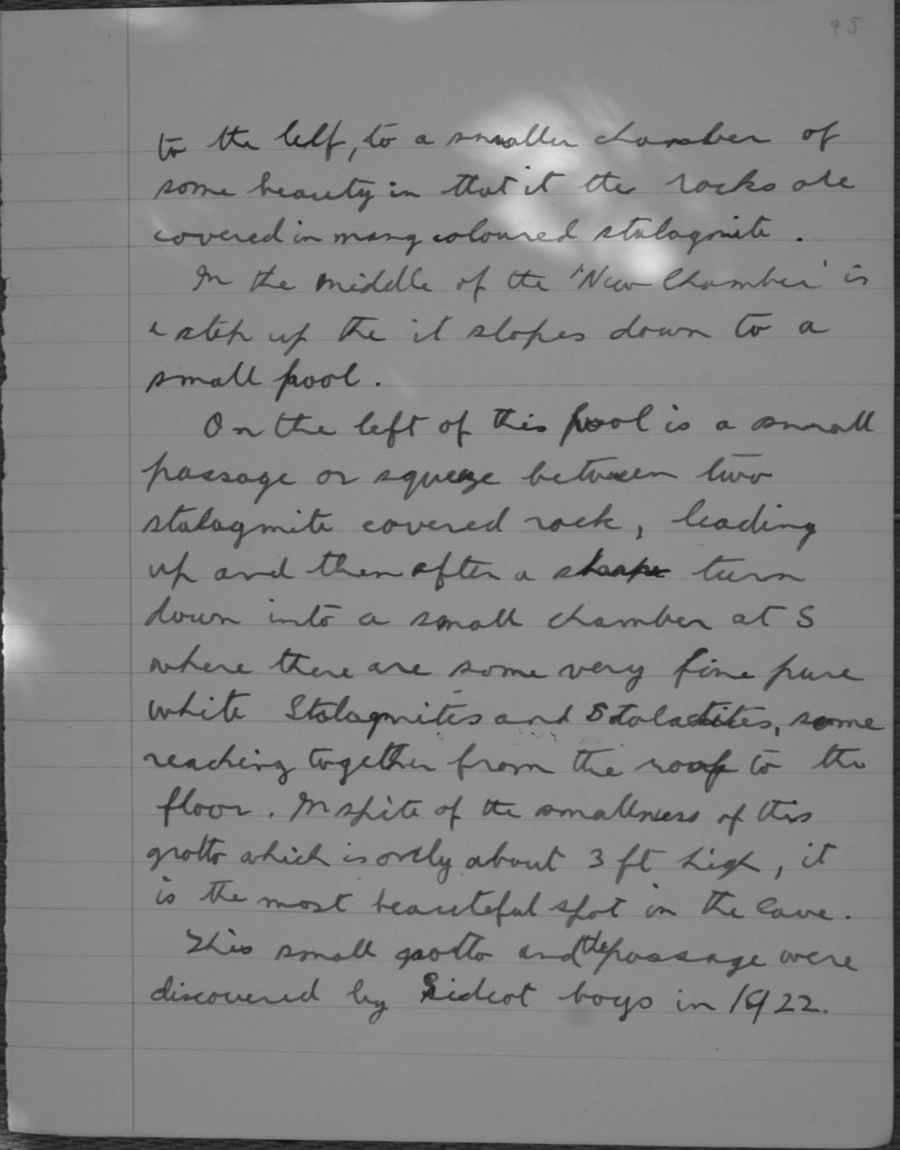 95
to the left, to a smaller chamber of
some beauty in that it the rocks are
covered in many coloured stalagmite.
In the middle of the 'New Chamber' is
a step up the it slopes down to a
small pool.
On the left of this pool is a small
passage or squeeze between two
stalagmite covered rock, leading
up and then after a sharpe turn
down into a small chamber at S
where there are some very fine pure
white Stalagmites and Stalactites, some
reaching together from the roof to the
floor. In spite of the smallness of this
grotto which is only about 3 ft high, it
is the most beauteful spot in the Cave.
This small grotto and the passage were
discovered by Sidcot boys in 1922.